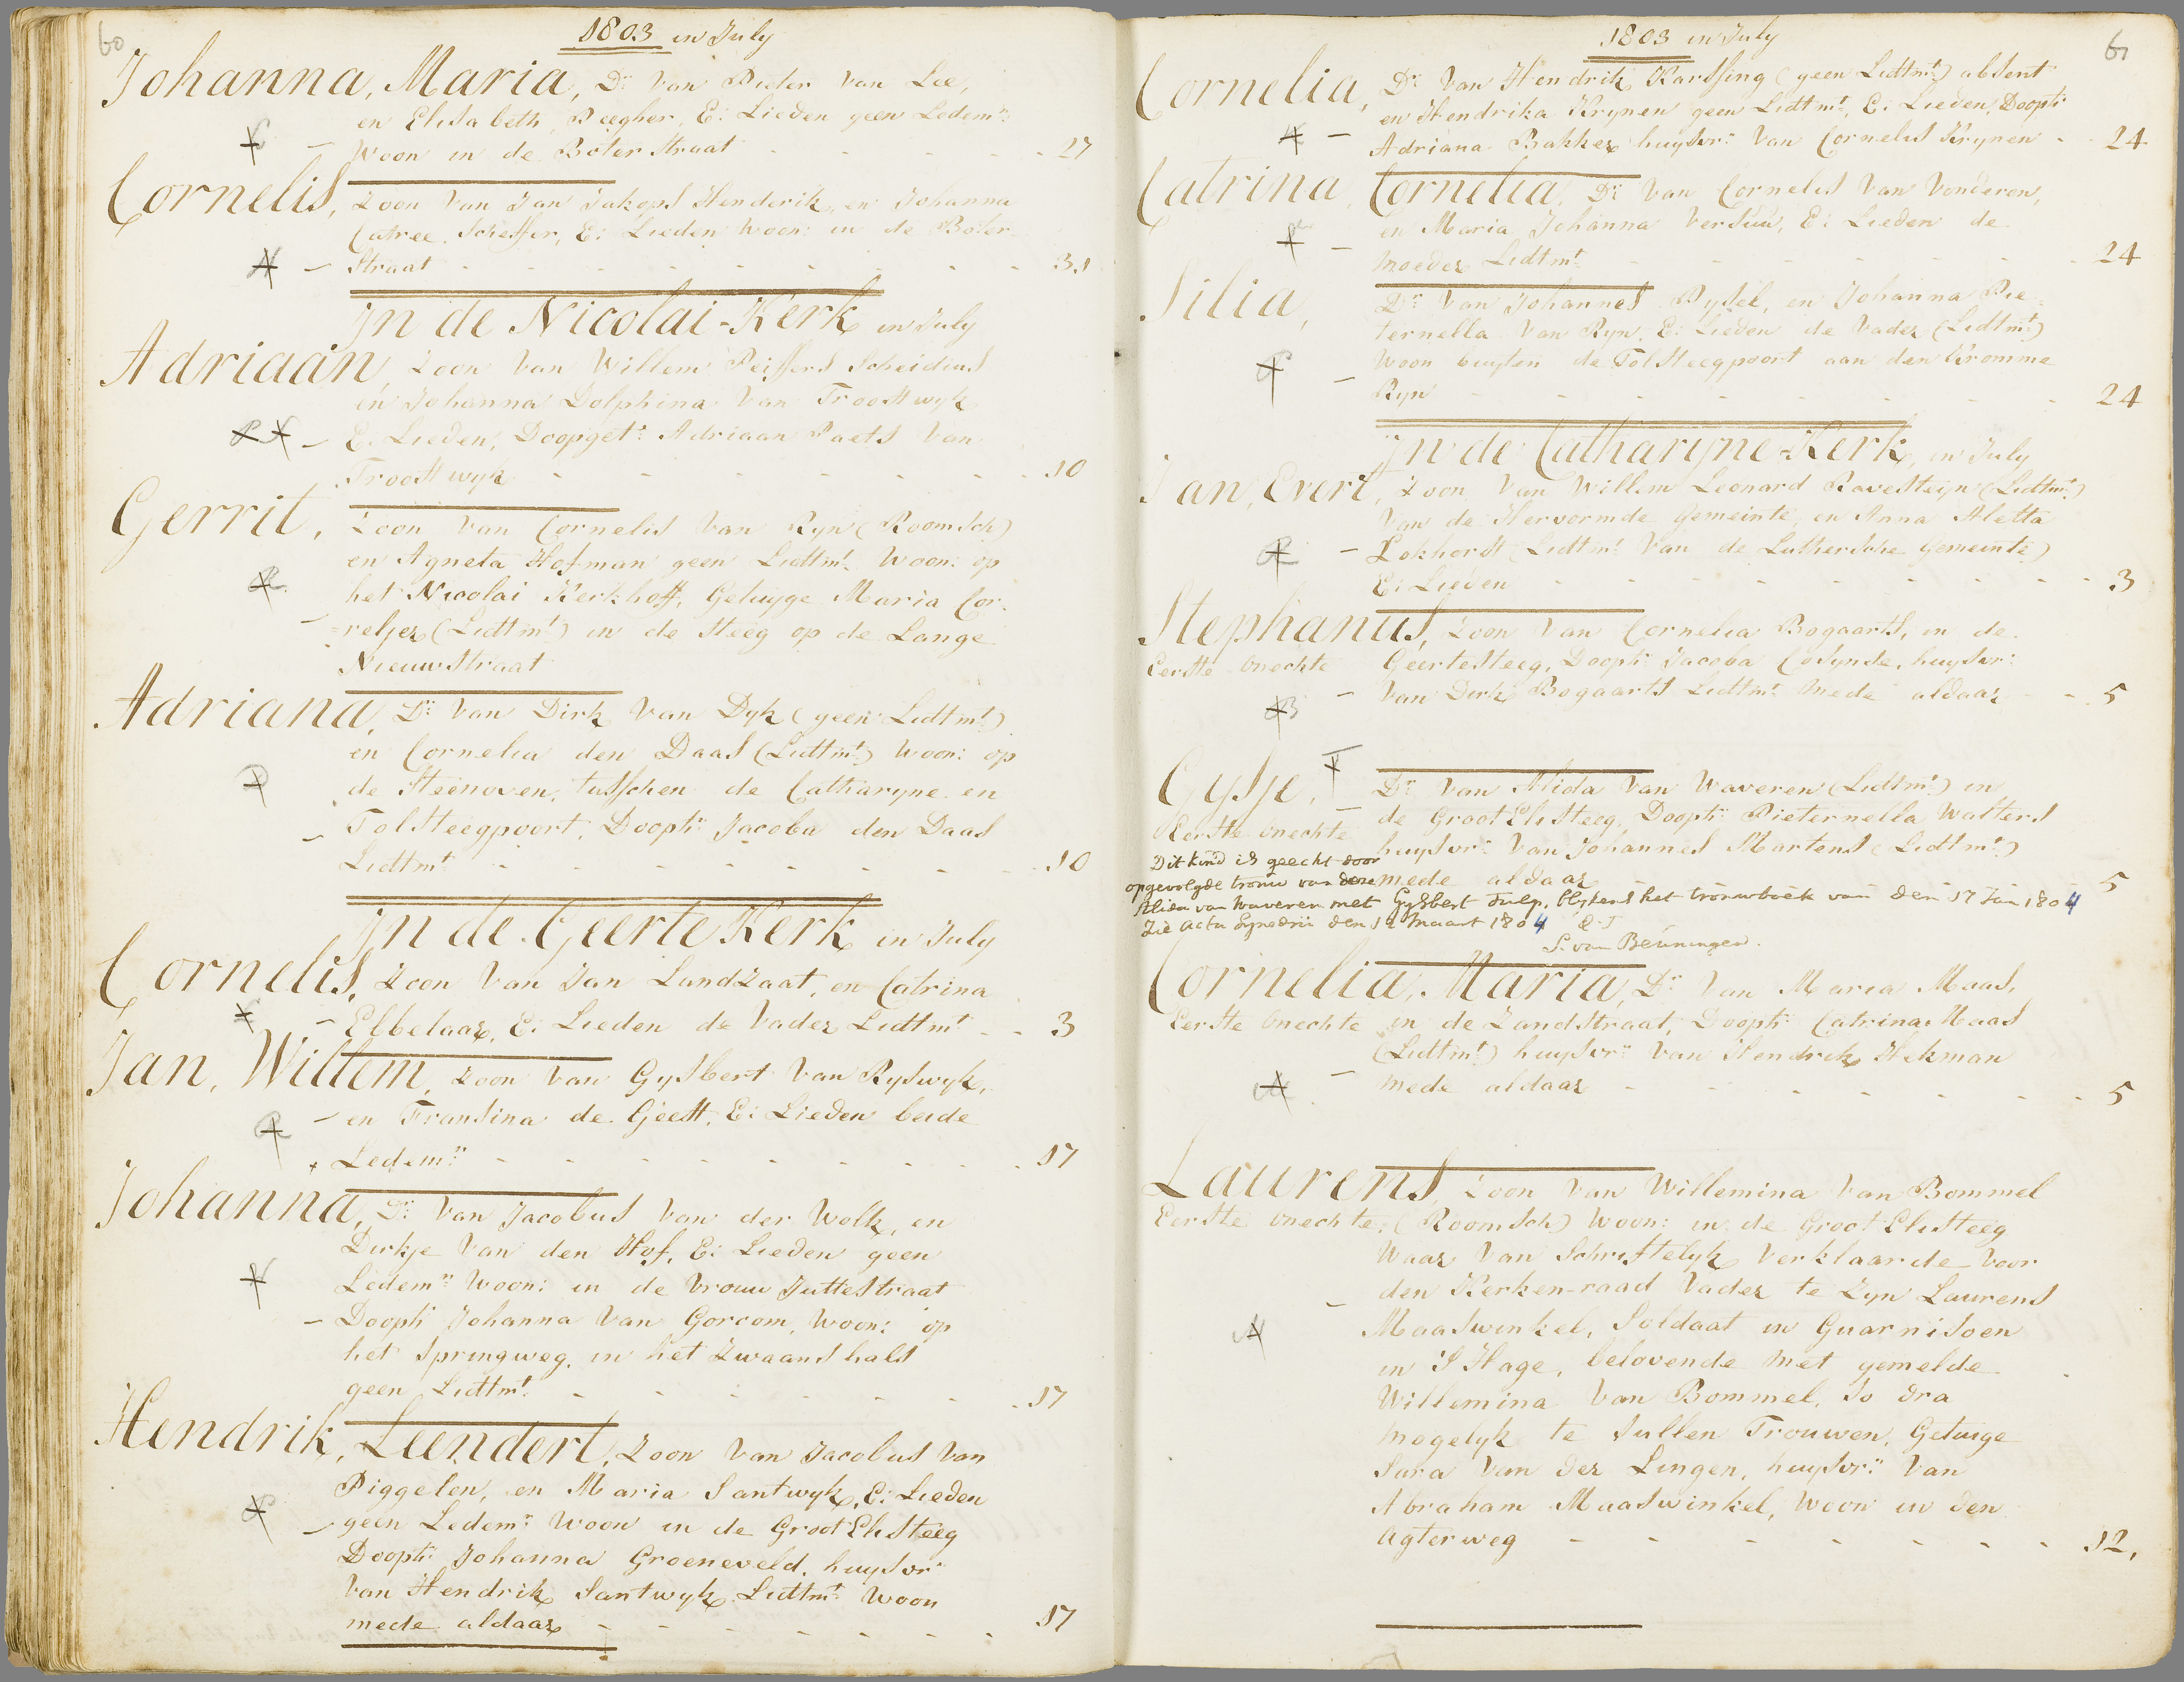 60
1803 in July
Johanna, Maria, Dr: van Pieter van Lee,
en Elisabeth Peegher, E: Lieden geen Ledemn:
woon in de Boterstraat - - - - 27
Cornelis, Zoon van Jan Jakops Henderik, en Johanna
Catree. Scheffer, E: Lieden woon: in de Boter
Straat - - - - - - - 31
In de Nicolai-Kerk in July
Adriaan, Zoon van Willem Peiffers Scheidius
en Johanna Dolphina van Troostwyk
E: Lieden, Doopget: Adriaan Paets van
Troostwyk - - - - - - - 10
Gerrit, Zoon van Cornelis van Ryn (Roomsch)
en Agneta Hofman geen Lidtmt: woon: op
het Nicolai Kerkhoff, Getuyge Maria Cor-
reljer (Lidtmt:) in de steeg op de Lange
Nieuwstraat
Adriana, Dr: van Dirk van Dyk (geen Lidtmt:)
en Cornelia den Daas (Lidtmt:) woon: op
de Steenoven, tusschen de Catharyne en
Tolsteegpoort, Doopt: Jacoba den Daas
Lidtmt - - - - - - - 10
In de Geerte Kerk in July
Cornelis, Zoon van Jan Landzaat, en Catrina
Ebbelaar, E: Lieden de vader Lidtmt - - 3
Jan, Willem, Zoon van Gysbert van Ryswyk,
en Fransina de Geest, E: Lieden beide
Ledemn: - - - - - - - 17
Johanna, Dr: van Jacobus van der Wolk, en
Dirkje van den Hof, E: Lieden geen
Ledemn: woon: in de Vrouw Juttestraat
Doopt: Johanna van Gorcom, woon: op
het Springweg, in het Zwaanshals
geen Lidtmt: - - - - - - 17
Hendrik, Leendert, Zoon van Jacobus van
Piggelen, en Maria Santwyk, E: Lieden
geen Ledemn: woon in de Groot Elisteeg
Doopt: Johanna Groeneveld, huysvr:
van Hendrik Santwyk Lidtmt: woon
mede aldaar - - - - - - - 17
61
1803 in July
Cornelia, Dr: van Hendrik Karssing (geen Lidtmt:) absent
en Hendrika Krynen geen Lidtmt:, E: Lieden, Doopt:
Adriana Bakker huysvr: van Cornelis Krynen - - 24
Catrina, Cornelia, Dr: van Cornelis van Vonderen,
en Maria Johanna Versuu, E: Lieden de
moeder Lidtmt: - - - - - - 24
Silia, Dr: van Johannes Pysel, en Johanna Pie-
ternella van Ryn, E: Lieden de vader (Lidtmt:)
woon buyten de Tolsteegpoort aan den Kromme
Ryn - - - - - - - 24
In de Catharyne-Kerk, in July
Jan, Evert, Zoon van Willem Leonard Ravesteijn (Lidtmt:)
van de Hervormde Gemeinte, en Anna Aletta
Lokhorst (Lidtmt: van de Luthersche Gemeinte)
E: Lieden - - - - - - - 3
Stephanus, Zoon van Cornelia Bogaarts, in de
Eerste onechte Geertesteeg, Doopt: Jacoba Cosynse, huysvr:
van Dirk Bogaarts Lidtmt: mede aldaar - - 5
Gysje, Dr: van Alida van Waveren (Lidtmt:) in
Eerste onechte de Groot Elisteeg, Doopt: Pieternella Walters
huysvr: van Johannes Martens (Lidtmt:)
mede aldaar - - - - - - 5
Dit kind is geecht door
opgevolgde trouw van deze
Alida van Waveren met Gysbert Tulp, blykens het trouwboek van den 17 Jan 1804
Zie acta Synedrii den 12 Maart 1804 Q.T
S. van Beuningen.
Cornelia, Maria, Dr: van Maria Maas,
Eerste onechte in de Zandstraat, Doopt: Catrina Maas
(Lidtmt:) huysvr: van Hendrik Hekman
mede aldaar - - - - - - 5
Laurens, Zoon van Willemina van Bommel
Eerste onechte, (Roomsch) woon: in de Groot Elisteeg
Waar van Schristelyk verklaarde voor
den Kerken-raad vader te zyn Laurens
Maaswinkel, Soldaat in Guarnisoen
in S Hage, belovende met gemelde
Willemina van Bommel, so dra
mogelyk te sullen Trouwen, Getuige
Sara van der Lingen, huysvr: van
Abraham Maaswinkel, woon in den
Agterweg - - - - - - - 12,